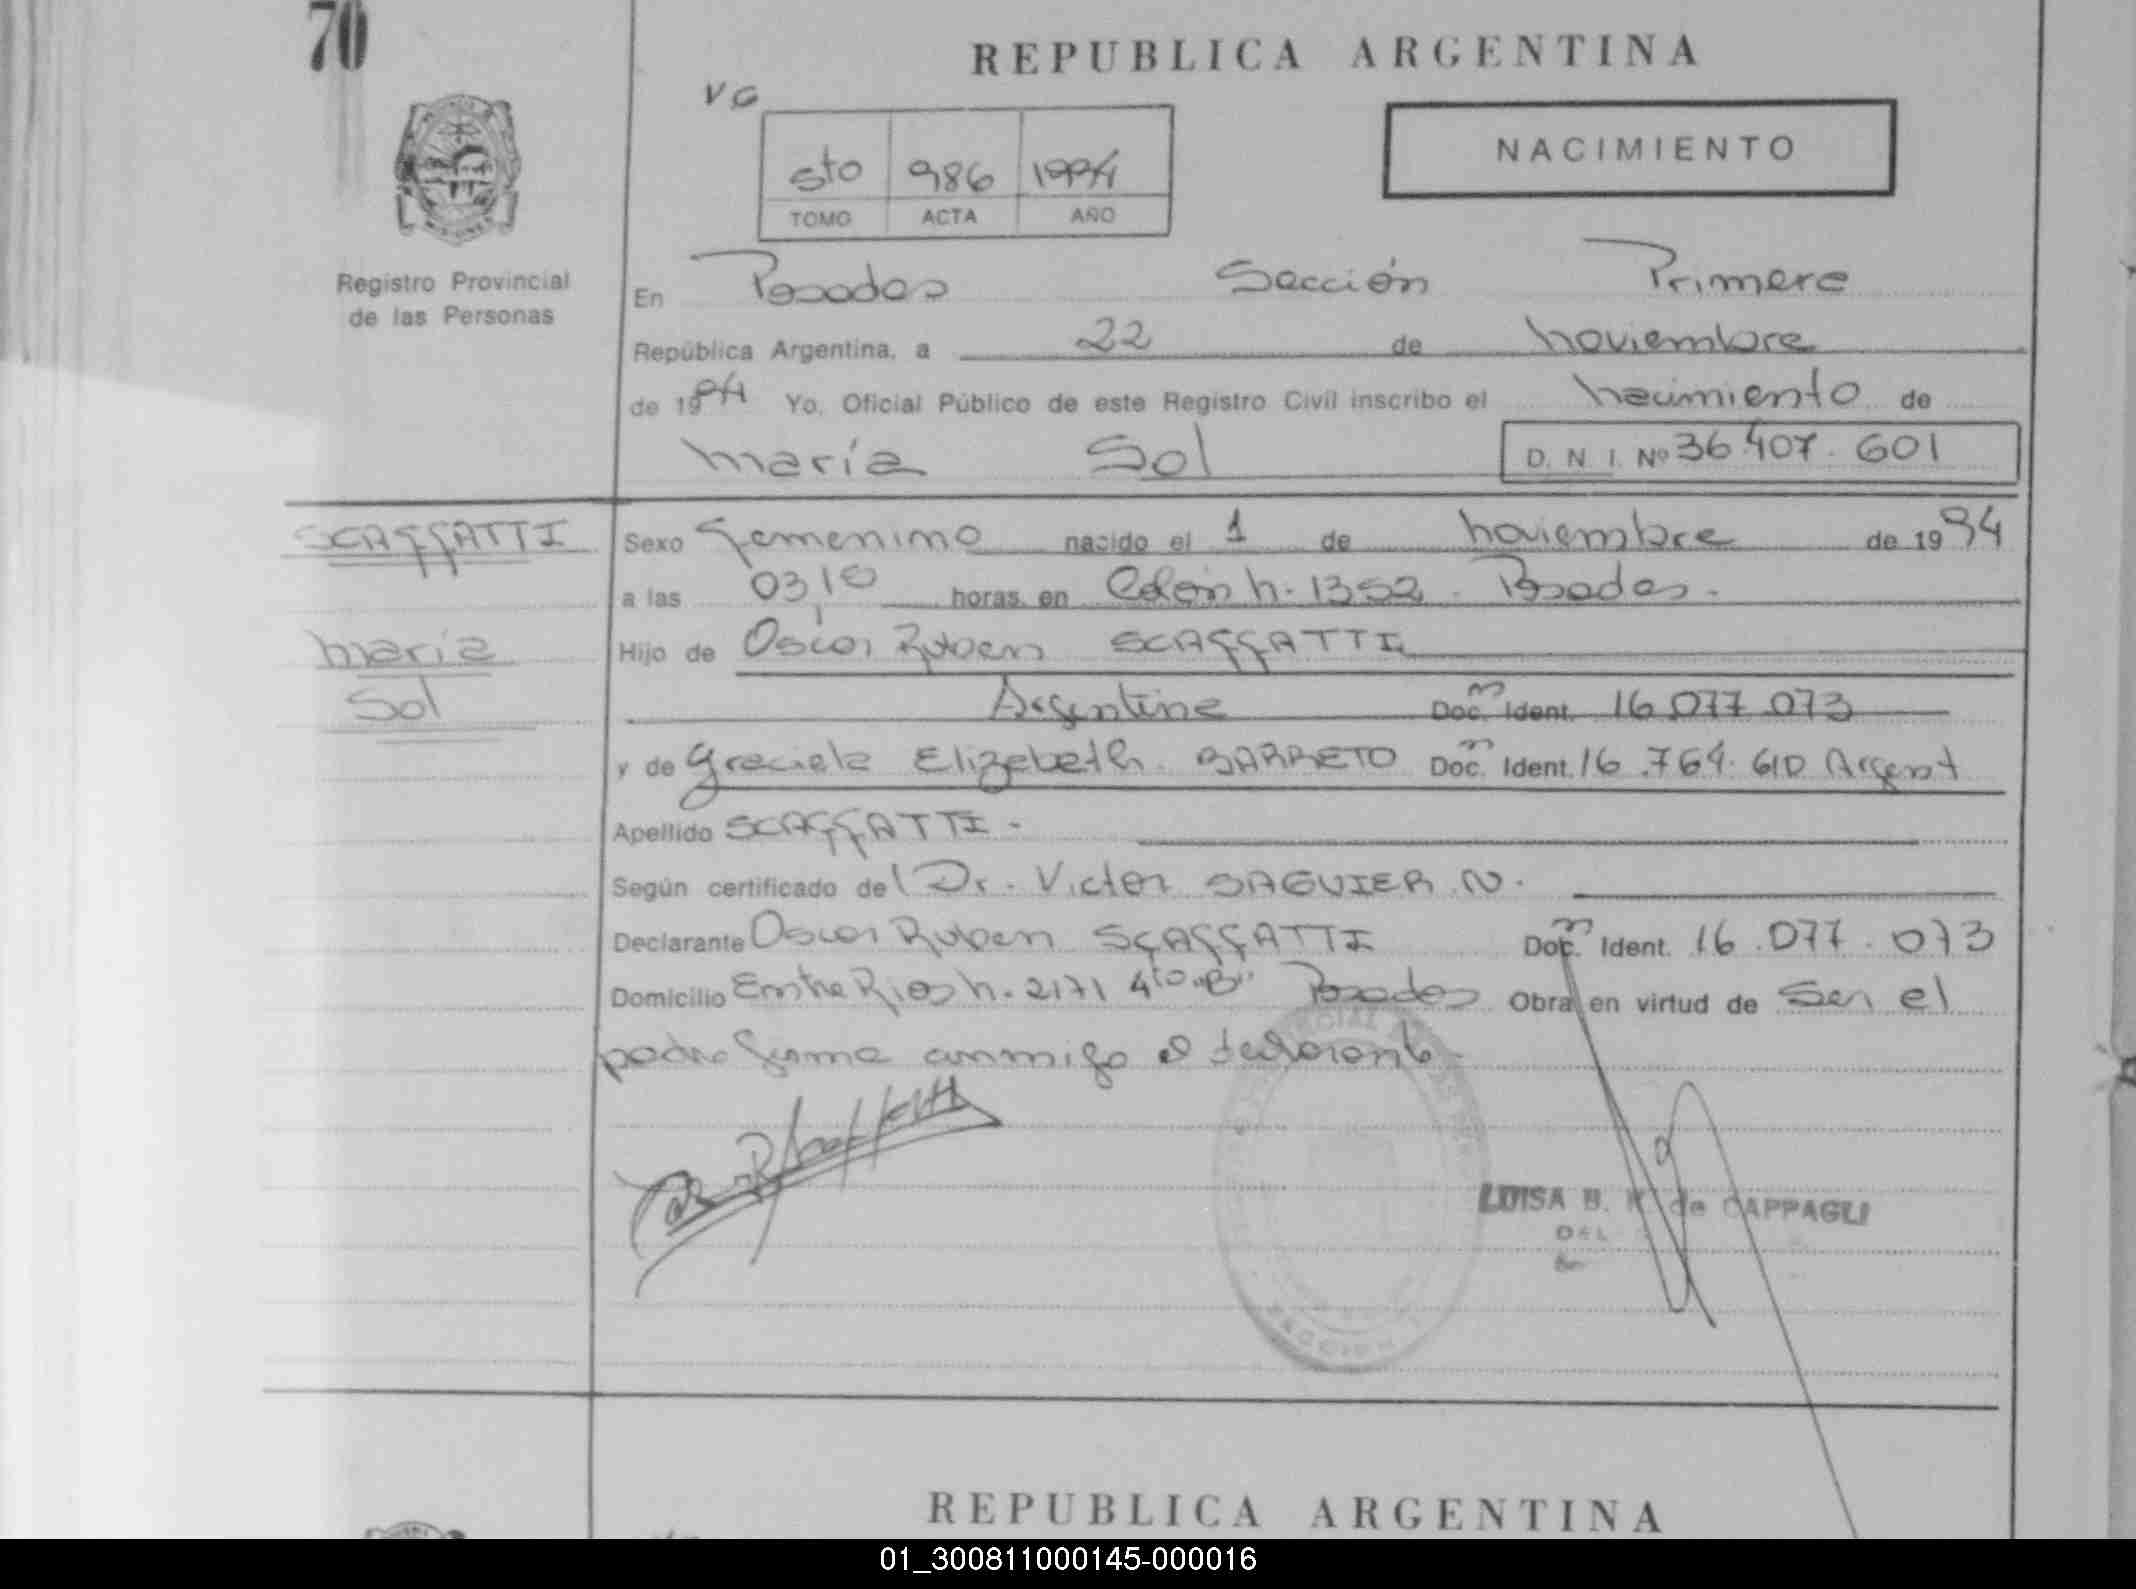 70
REPUBLICA ARGENTINA
VG
NACIMIENTO
5to 986 1994
TOMO ACTA AÑO
Registro Provincial
de las Personas
En Posadas Sección Primera
República Argentina, a 22 de noviembre
de 1994 Yo, Oficial Público de este Registro Civil inscribo el nacimiento de
María Sol D. N. I. Nº 36.407.601
SCAFFATTI
María
Sol
Sexo Femenino nacido el 1 de noviembre de 1994
a las 03,10 horas en Colón n. 1352 - Posadas.
Hijo de Oscar Ruben SCAFFATTI
Argentina Doc. Ident. 16.077.073
y de Graciela Elizabeth BARRETO Doc. Ident. 16.764.610 Argent
Apellido SCAFFATTI -
Según certificado del Dr. Victor SAGUIER N.
Declarante Oscar Ruben SCAFFATTI Doc. Ident. 16.077.073
Domicilio Entre Rios n. 2171 4to "B" Posadas Obra en virtud de Ser el
padre firma conmigo el declarante -
LUISA B. de CAPPAGLI
DEL
SECCION
REPUBLICA ARGENTINA
01_300811000145-000016